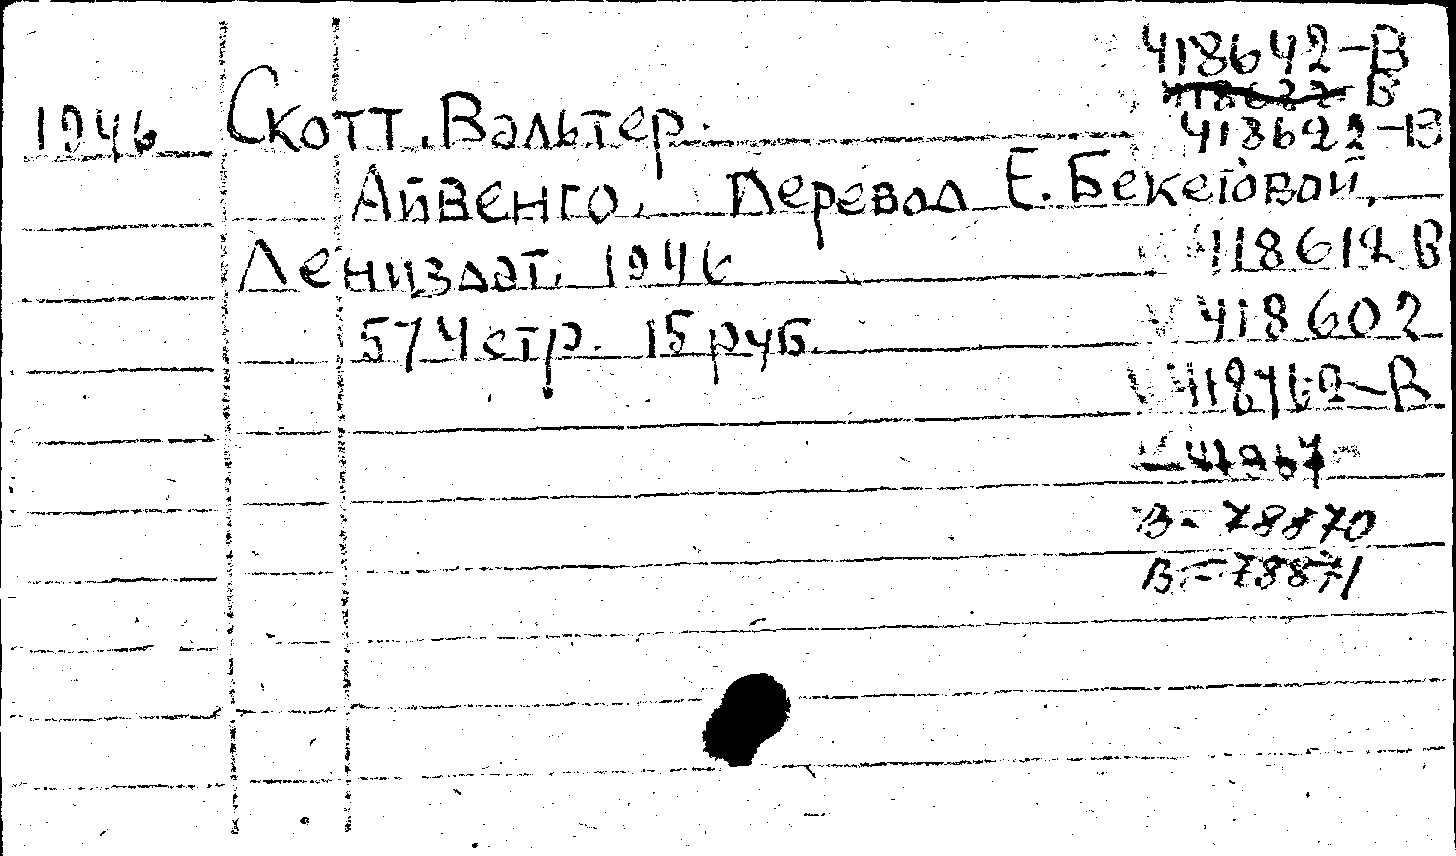 418642-В
1946 Скотт, Вальтер.
418622-В
Айвенго. Перевод Е. Бекетовой,
418612 В
Лениздат, 1946
418602
574 стр. 15 руб.
В-78870
В-78871